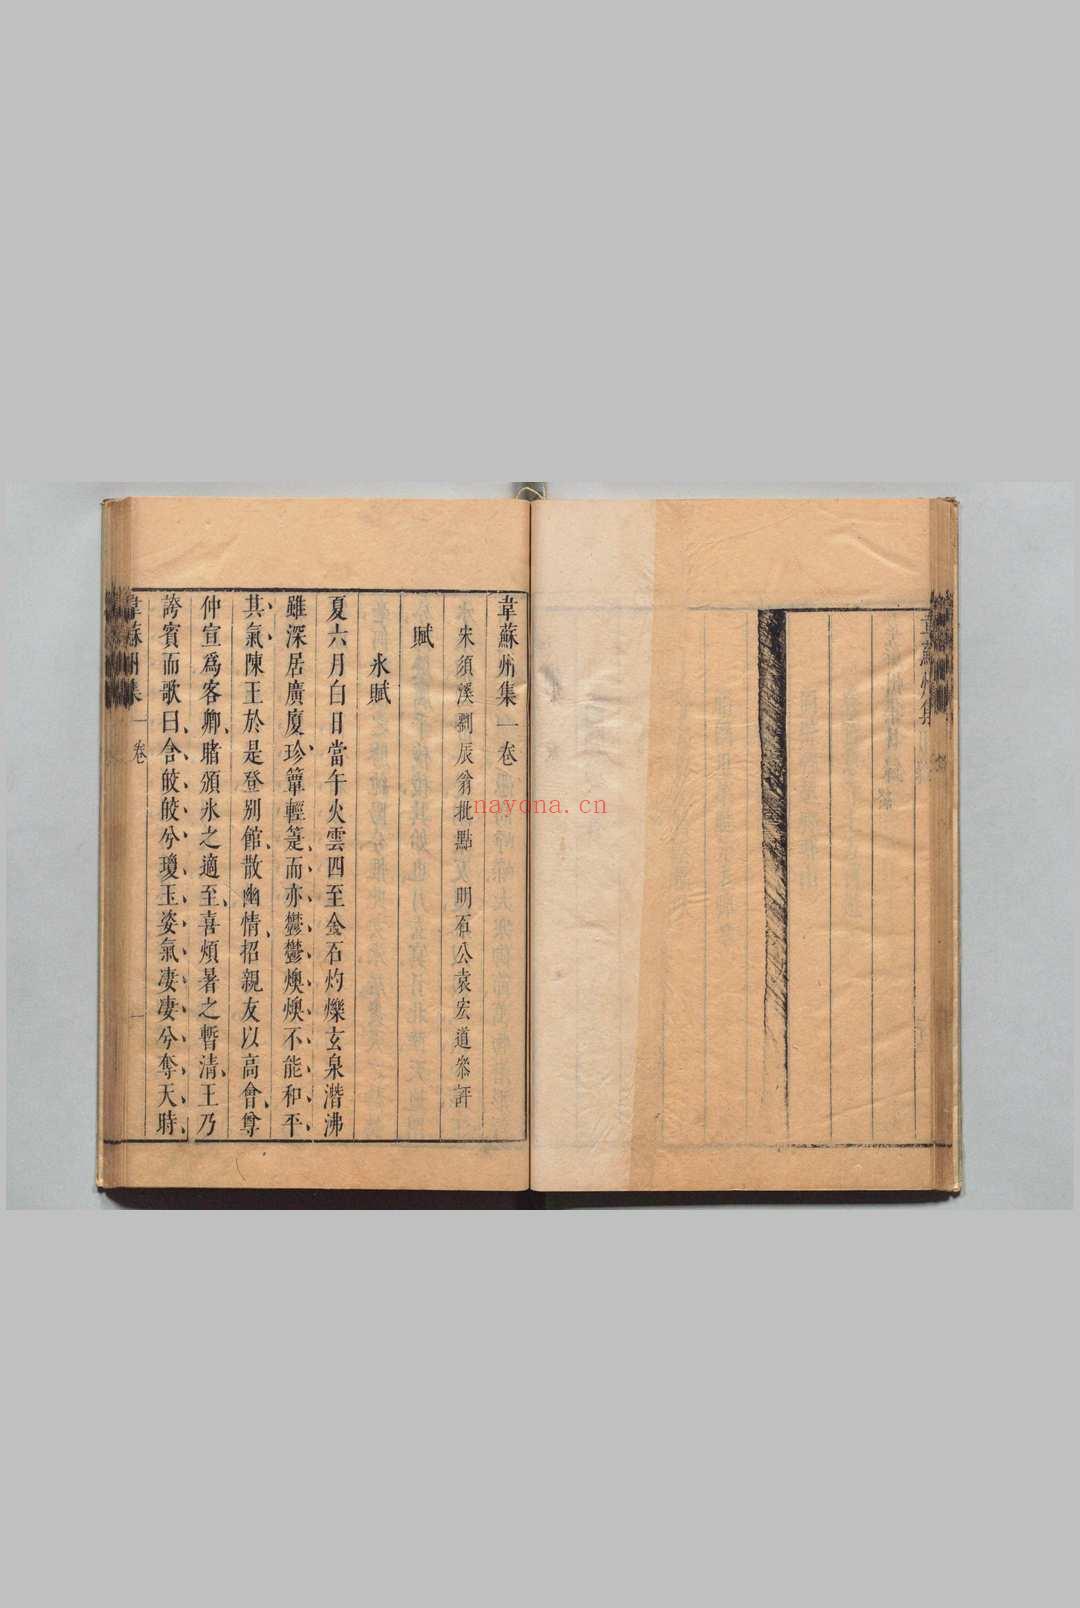 韋蘇州集
韋蘇州集一卷
宋須溪劉辰翁批點 明石公袁宏道參評
賦
氷賦
夏六月白日當午火雲四至金石灼爍玄泉潛沸
雖深居廣廈珍簟輕箑而亦鬱鬱燠燠不能和平
其氣陳王於是登別館散幽情招親友以高會尊
仲宣爲客卿睹頒氷之適至喜煩暑之暫清王乃
誇賓而歌曰含皎皎兮瓊玉姿氣凄凄兮奪天時
韋蘇州集 一卷 一
nayona.cn